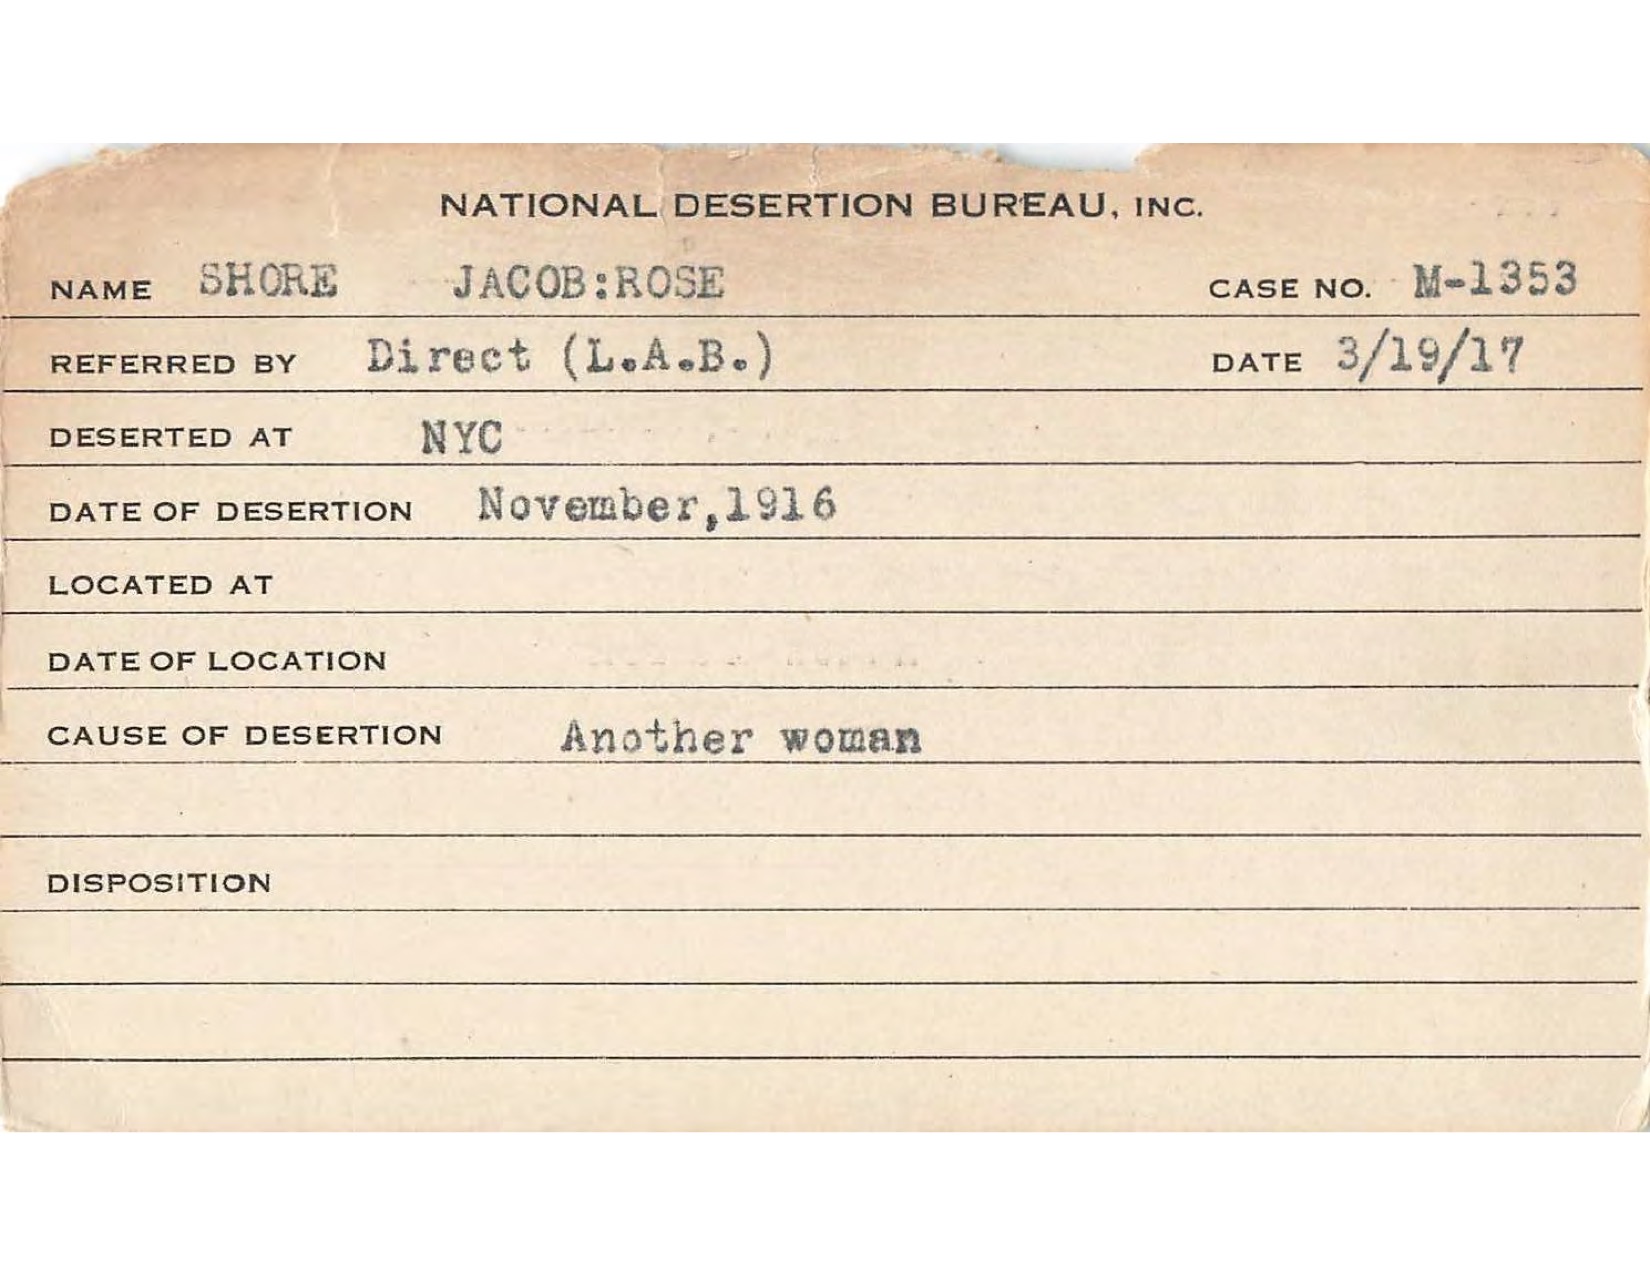 NATIONAL DESERTION BUREAU, INC.
NAME SHORE JACOB:ROSE CASE NO. M-1353
REFERRED BY Direct (L.A.B.) DATE 3/19/17
DESERTED AT NYC
DATE OF DESERTION November,1916
LOCATED AT
DATE OF LOCATION
CAUSE OF DESERTION Another woman
DISPOSITION